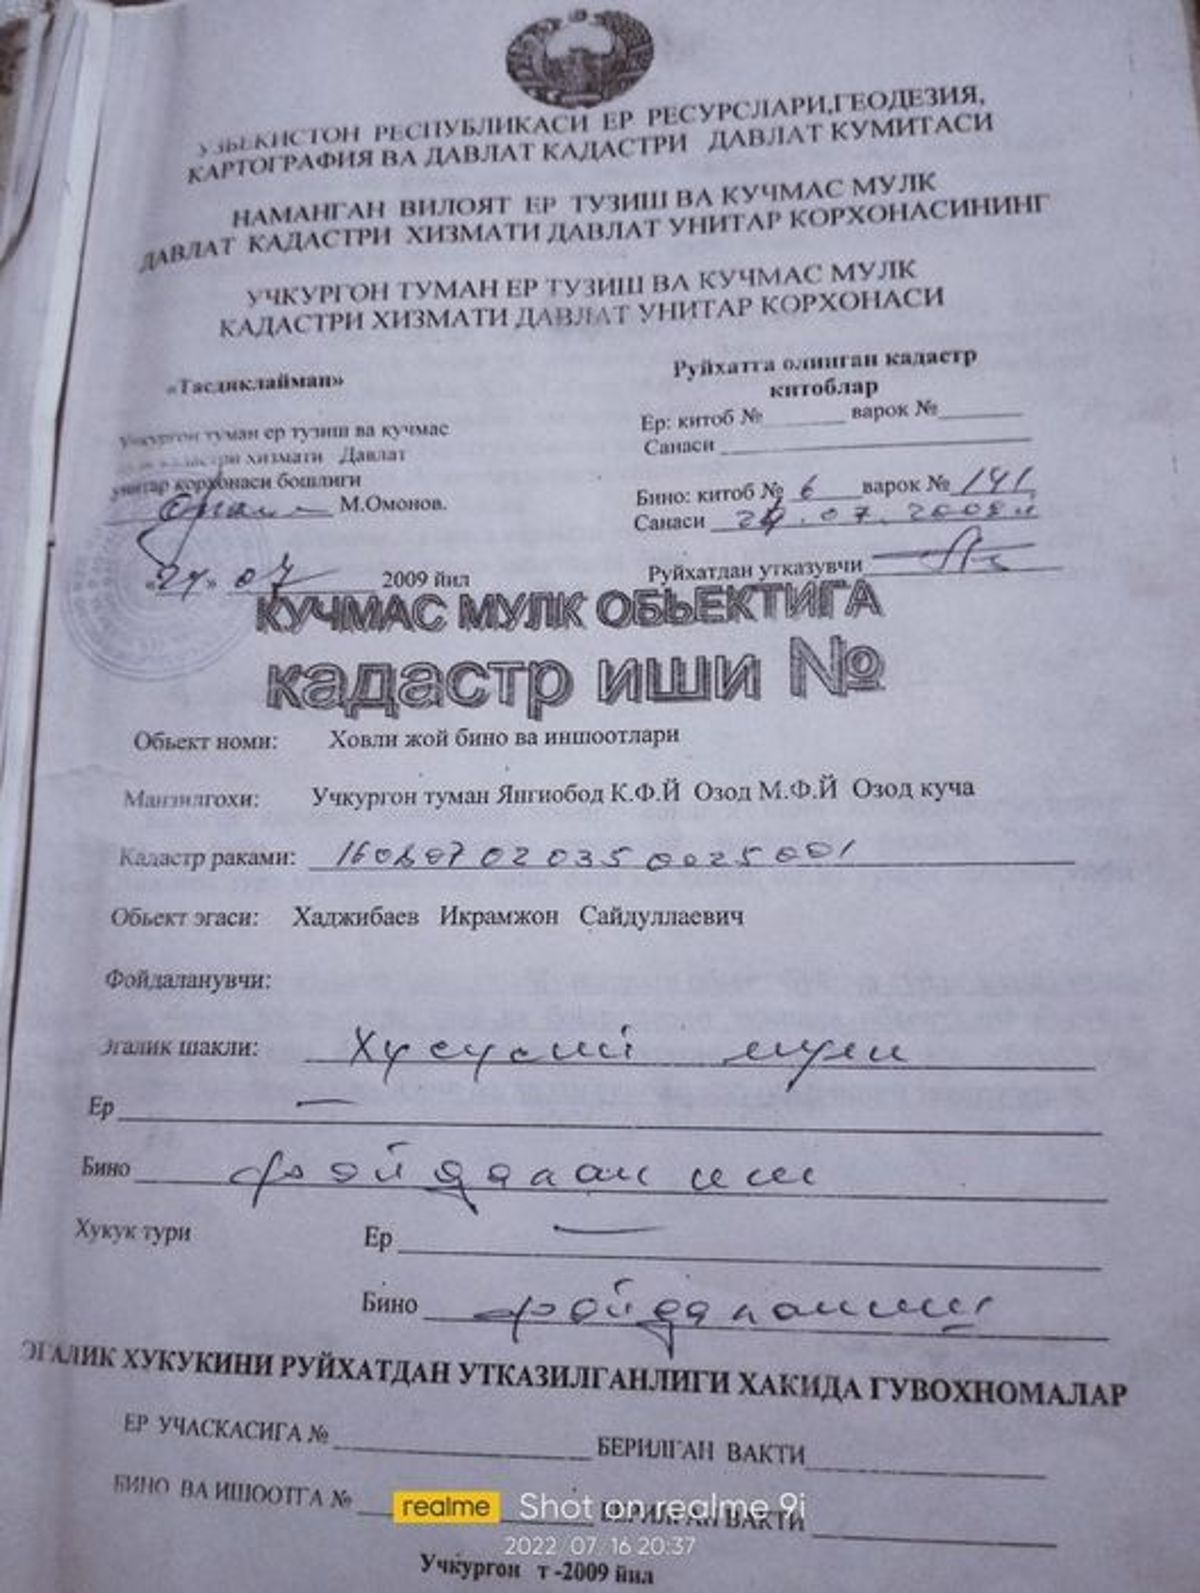 УЗБЕКИСТОН РЕСПУБЛИКАСИ ЕР РЕСУРСЛАРИ,ГЕОДЕЗИЯ,
КАРТОГРАФИЯ ВА ДАВЛАТ КАДАСТРИ ДАВЛАТ КУМИТАСИ
НАМАНГАН ВИЛОЯТ ЕР ТУЗИШ ВА КУЧМАС МУЛК
ДАВЛАТ КАДАСТРИ ХИЗМАТИ ДАВЛАТ УНИТАР КОРХОНАСИНИНГ
УЧКУРГОН ТУМАН ЕР ТУЗИШ ВА КУЧМАС МУЛК
КАДАСТРИ ХИЗМАТИ ДАВЛАТ УНИТАР КОРХОНАСИ
«Тасдиклайман»
Учкургон туман ер тузиш ва кучмас
мулк кадастри хизмати Давлат
унитар корхонаси бошлиги
М.Омонов.
«24» 07 2009 йил
Руйхатга олинган кадастр
китоблар
Ер: китоб № варок №
Санаси
Бино: китоб № 6 варок № 141
Санаси 24.07.2009
Руйхатдан утказувчи
КУЧМАС МУЛК ОБЬЕКТИГА
кадастр иши №
Обьект номи: Ховли жой бино ва иншоотлари
Манзилгохи: Учкургон туман Янгиобод К.Ф.Й Озод М.Ф.Й Озод куча
Кадастр раками: 160807020350025001
Обьект эгаси: Хаджибаев Икрамжон Сайдуллаевич
Фойдаланувчи:
Эгалик шакли: Хусусий мулк
Ер —
Бино фойдаланиш
Хукук тури Ер —
Бино фойдаланиш
ЭГАЛИК ХУКУКИНИ РУЙХАТДАН УТКАЗИЛГАНЛИГИ ХАКИДА ГУВОХНОМАЛАР
ЕР УЧАСКАСИГА № БЕРИЛГАН ВАКТИ
БИНО ВА ИШООТГА № БЕРИЛГАН ВАКТИ
realme Shot on realme 9i
2022 07 16 20:37
Учкургон т -2009 йил